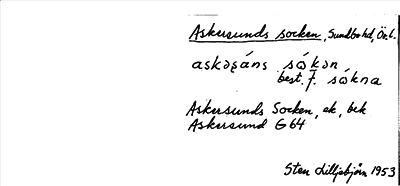 Askersunds socken, Sundbo hd, Ör.l.
askəʂáns sɷ́kən
best. f. sɷ́kna
Askersunds Socken, ek, bek
Askersund G64
Sten Lilljebjörn 1953